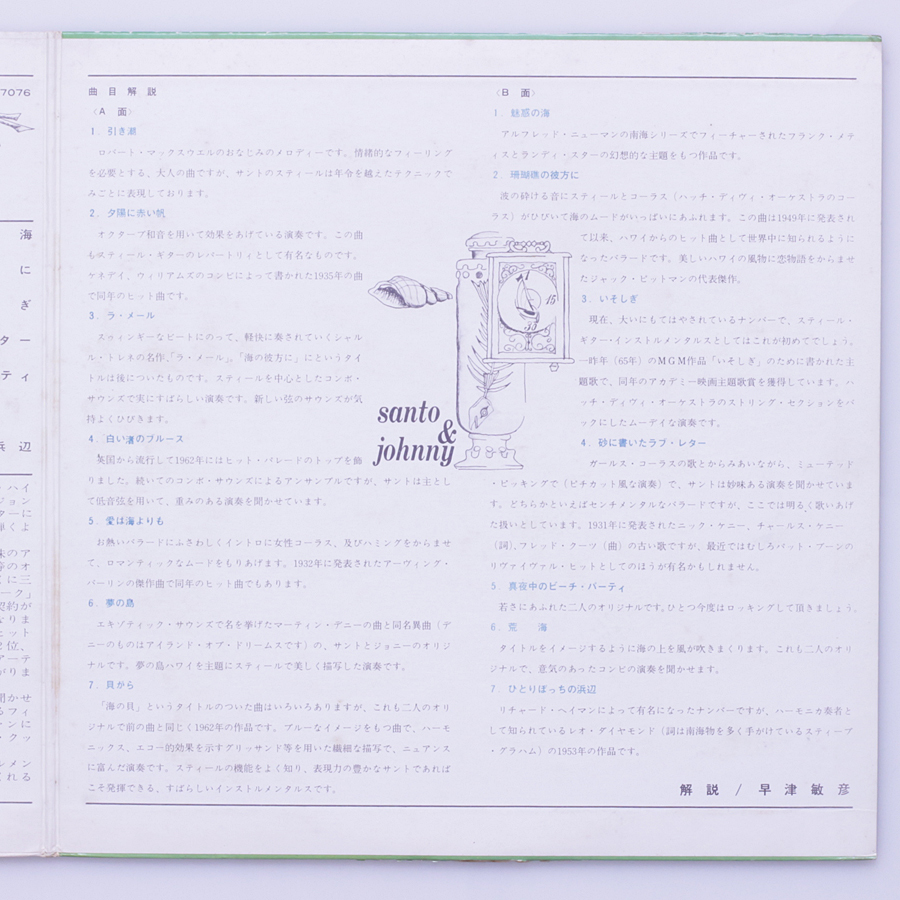 7076
海
に
ぎ
ター
ティ
浜辺
曲目解説
〈A 面〉
1. 引き潮
ロバート・マックスウエルのおなじみのメロディーです。情緒的なフィーリング
を必要とする、大人の曲ですが、サントのスティールは年令を越えたテクニックで
みごとに表現しております。
2. 夕陽に赤い帆
オクターブ和音を用いて効果をあげている演奏です。この曲
もスティール・ギターのレパートリィとして有名なものです。
ケネデイ、ウィリアムズのコンビによって書かれた1935年の曲
で同年のヒット曲です。
3. ラ・メール
スウィンギーなビートにのって、軽快に奏されていくシャル
ル・トレネの名作、「ラ・メール」。「海の彼方に」にというタイ
トルは後についたものです。スティールを中心としたコンボ・
サウンズで実にすばらしい演奏です。新しい弦のサウンズが気
持よくひびきます。
4. 白い渚のブルース
英国から流行して1962年にはヒット・パレードのトップを飾
りました。続いてのコンボ・サウンズによるアンサンブルですが、サントは主とし
て低音弦を用いて、重みのある演奏を聞かせています。
5. 愛は海よりも
お熱いバラードにふさわしくイントロに女性コーラス、及びハミングをからませ
て、ロマンティックなムードをもりあげます。1932年に発表されたアーヴィング・
バーリンの傑作曲で同年のヒット曲でもあります。
6. 夢の島
エキゾティック・サウンズで名を挙げたマーティン・デニーの曲と同名異曲（デ
ニーのものはアイランド・オブ・ドリームスです）の、サントとジョニーのオリジ
ナルです。夢の島ハワイを主題にスティールで美しく描写した演奏です。
7. 貝がら
「海の貝」というタイトルのついた曲はいろいろありますが、これも二人のオリ
ジナルで前の曲と同じく1962年の作品です。ブルーなイメージをもつ曲で、ハーモ
ニックス、エコー的効果を示すグリッサンド等を用いた繊細な描写で、ニュアンス
に富んだ演奏です。スティールの機能をよく知り、表現力の豊かなサントであれば
こそ発揮できる、すばらしいインストルメンタルスです。
santo
&
johnny
〈B 面〉
1. 魅惑の海
アルフレッド・ニューマンの南海シリーズでフィーチャーされたフランク・メテ
ィスとランディ・スターの幻想的な主題をもつ作品です。
2. 珊瑚礁の彼方に
波の砕ける音にスティールとコーラス（ハッチ・ディヴィ・オーケストラのコー
ラス）がひびいて海のムードがいっぱいにあふれます。この曲は1949年に発表され
て以来、ハワイからのヒット曲として世界中に知られるように
なったバラードです。美しいハワイの風物に恋物語をからませ
たジャック・ピットマンの代表傑作。
3. いそしぎ
現在、大いにもてはやされているナンバーで、スティール・
ギター・インストルメンタルスとしてはこれが初めてでしょう。
一昨年（65年）のMGM作品「いそしぎ」のために書かれた主
題歌で、同年のアカデミー映画主題歌賞を獲得しています。ハ
ッチ・ディヴィ・オーケストラのストリング・セクションをバ
ックにしたムーデイな演奏です。
4. 砂に書いたラブ・レター
ガールス・コーラスの歌とからみあいながら、ミューテッド
・ピッキングで（ピチカット風な演奏）で、サントは妙味ある演奏を聞かせていま
す。どちらかといえばセンチメンタルなバラードですが、ここでは明るく歌いあげ
た扱いとしています。1931年に発表されたニック・ケニー、チャールス・ケニー
（詞）、フレッド・クーツ（曲）の古い歌ですが、最近ではむしろパット・ブーンの
リヴァイヴァル・ヒットとしてのほうが有名かもしれません。
5. 真夜中のビーチ・パーティ
若さにあふれた二人のオリジナルです。ひとつ今度はロッキングして頂きましょう。
6. 荒海
タイトルをイメージするように海の上を風が吹きまくります。これも二人のオリ
ジナルで、意気のあったコンビの演奏を聞かせます。
7. ひとりぼっちの浜辺
リチャード・ヘイマンによって有名になったナンバーですが、ハーモニカ奏者と
して知られているレオ・ダイヤモンド（詞は南海物を多く手がけているスティーブ
・グラハム）の1953年の作品です。
解説 / 早津敏彦